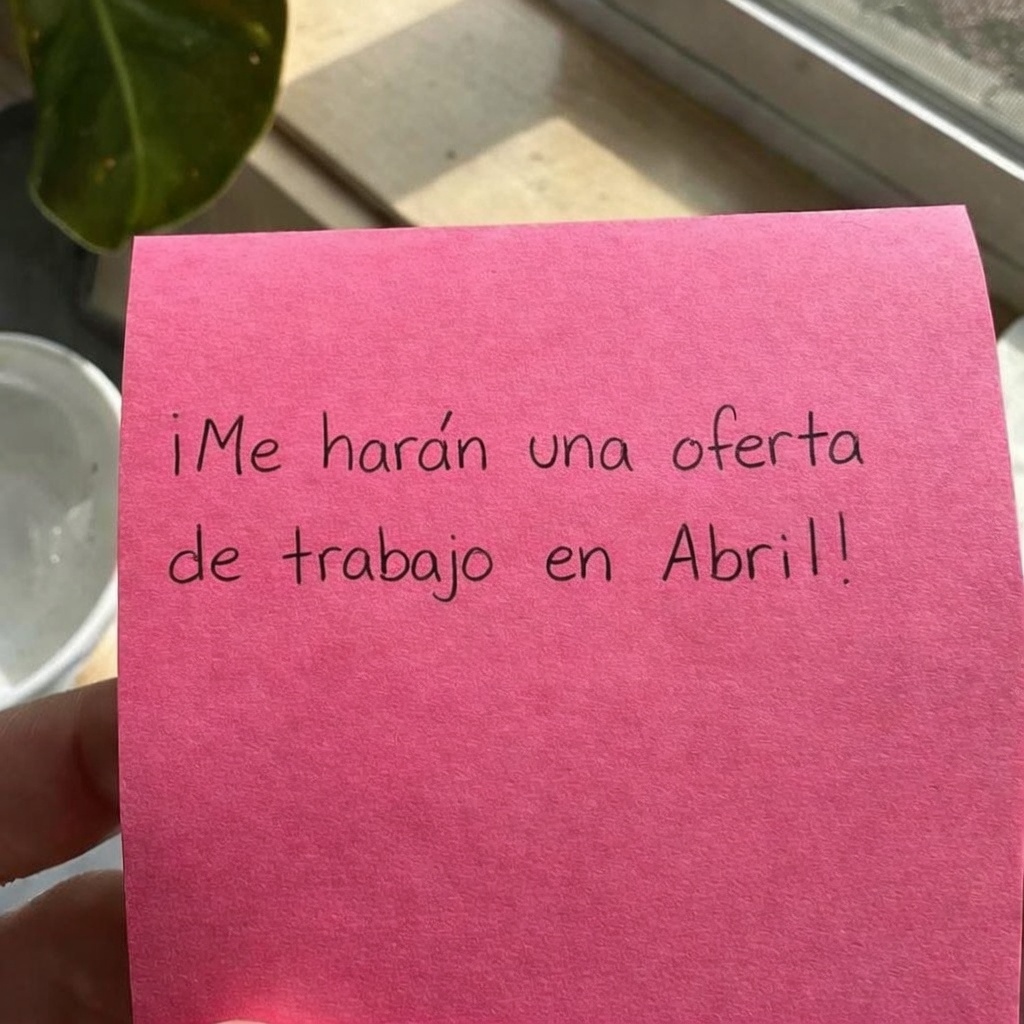 ¡Me harán una oferta
de trabajo en Abril!